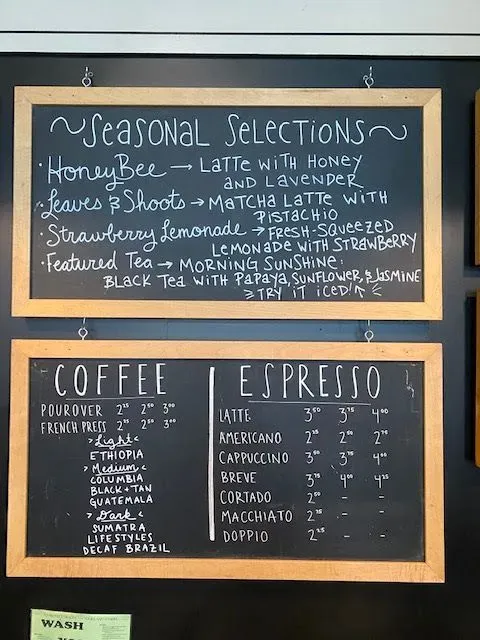 ~Seasonal Selections~
· HoneyBee → Latte with Honey
and Lavender
· Leaves & Shoots → Matcha Latte with
Pistachio
· Strawberry Lemonade → Fresh-Squeezed
Lemonade with Strawberry
· Featured Tea → Morning Sunshine:
Black Tea with Papaya, Sunflower, & Jasmine
Try it iced!
COFFEE
POUROVER 2²⁵ 2⁵⁰ 3⁰⁰
FRENCH PRESS 2²⁵ 2⁵⁰ 3⁰⁰
Light
ETHIOPIA
Medium
COLUMBIA
BLACK+TAN
GUATEMALA
Dark
SUMATRA
LIFESTYLES
DECAF BRAZIL
ESPRESSO
LATTE 3⁵⁰ 3⁷⁵ 4⁰⁰
AMERICANO 2²⁵ 2⁵⁰ 2⁷⁵
CAPPUCCINO 3⁵⁰ 3⁷⁵ 4⁰⁰
BREVE 3⁷⁵ 4⁰⁰ 4²⁵
CORTADO 2⁵⁰ - -
MACCHIATO 2⁷⁵ - -
DOPPIO 2²⁵ - -
WASH